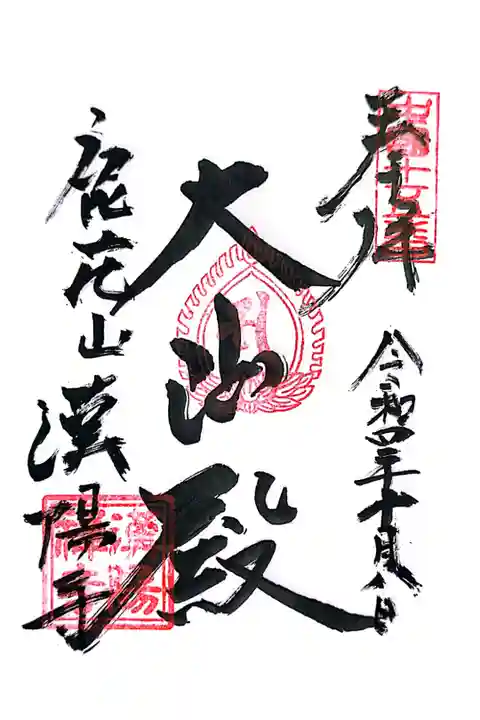 奉拝
令和四年十月八日
大山殿
鹿苑山漢陽寺
漢陽寺